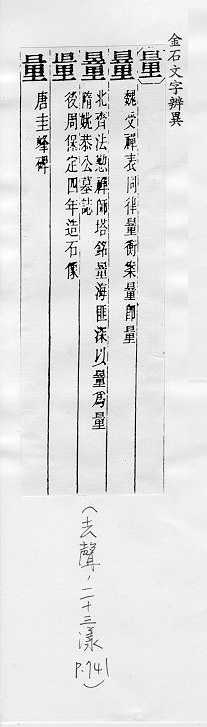 金石文字辨異
【量】
量 魏受禪表同律量衡案量即量
量 北齊法懃禪師塔銘量海匪深以量為量
隋姚恭公墓誌
量 後周保定四年造石像
量 唐圭峰碑
(去聲，二十三漾 P.741)